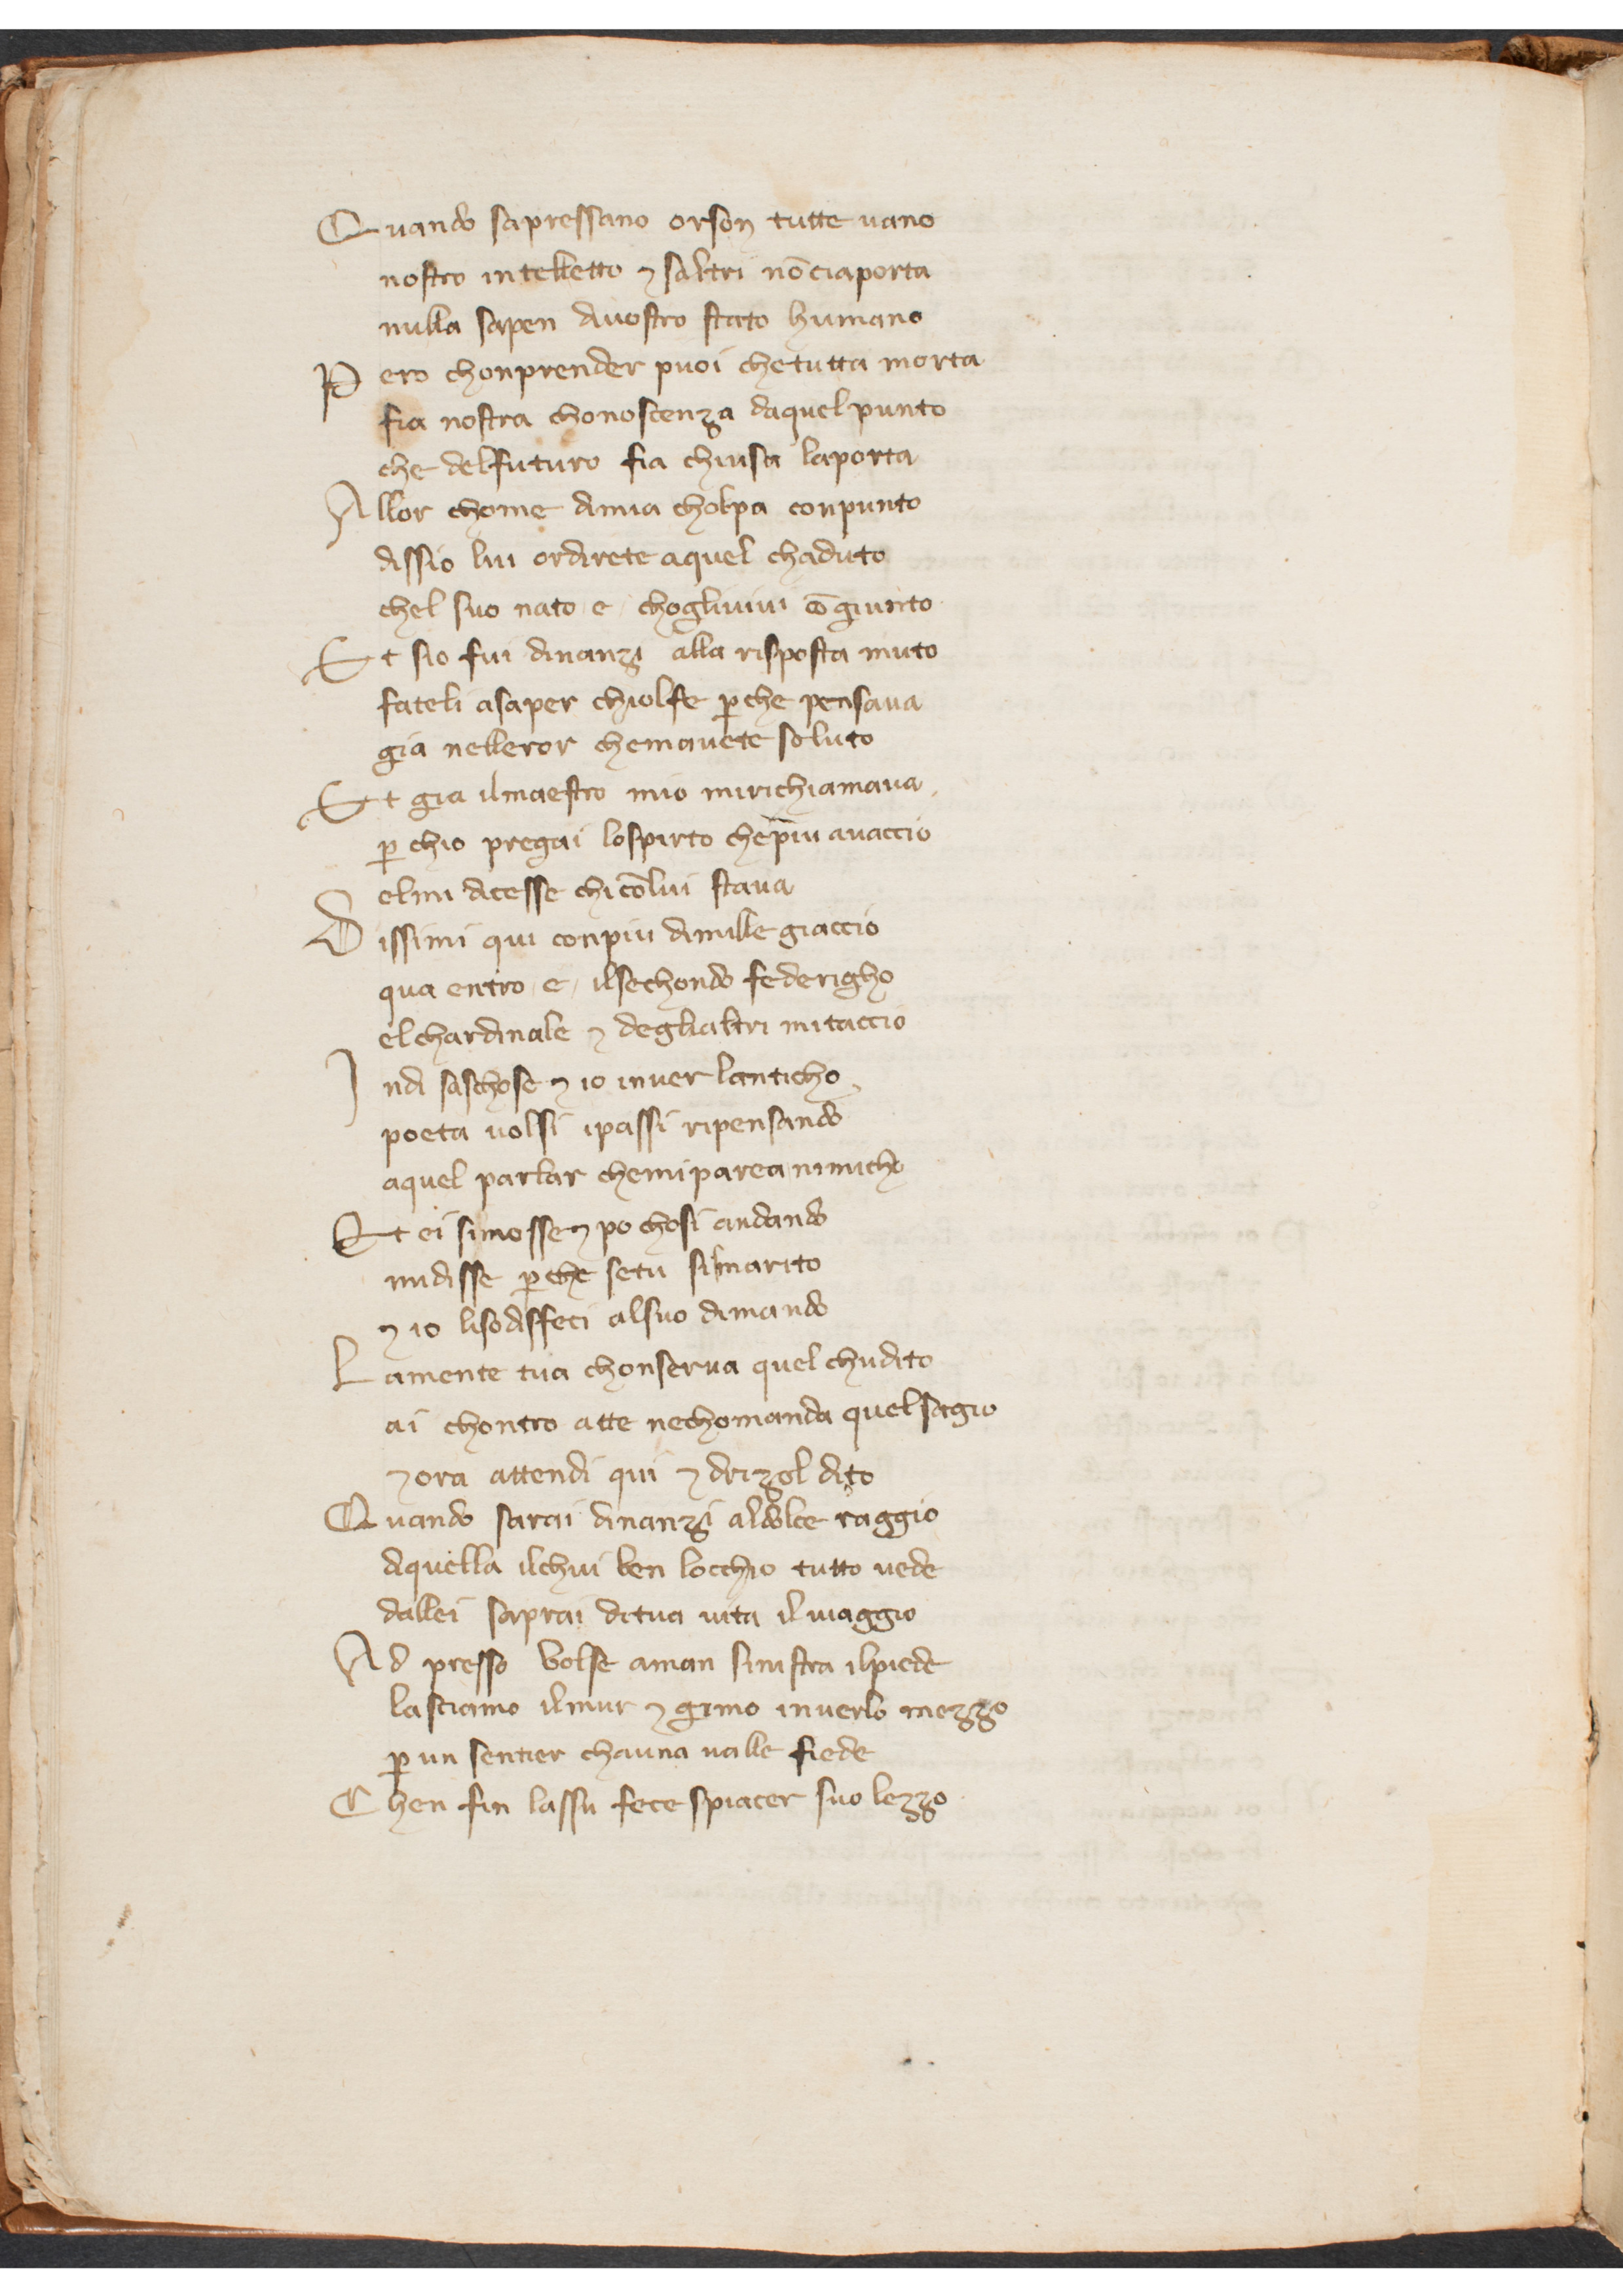 Quando sapressano orson tutte uano
nostro intelletto ⁊ saltri nō ciaporta
nulla sapen diuostro stato humano
Pero chonprender puoi chetutta morta
fia nostra chonoscenza daquel punto
che delfuturo fia chiusa laporta
Allor chome dimia cholpa conpunto
dissio lui ordirete aquel chaduto
chel suo nato e chogliuiui cōgiunto
Et sio fui dinanzi alla risposta muto
fateli asaper chiolfe ꝑche pensaua
gia nelleror chemauete soluto
Et gia ilmaestro mio mirichiamaua
ꝑ chio pregai lospirto chepiu auaccio
elmi dicesse chi cōlui staua
Dissimi qui conpiu dimille giaccio
qua entro e ilsechondo federigho
elchardinale ⁊ deglialtri mitaccio
Indi saschose ⁊ io inuer lanticho
poeta uolsi ipassi ripensando
aquel parlar chemiparea nimicho
Et ei simosse ⁊ po chosi andando
midisse ꝑche setu sismarito
⁊ io lisodisfeci alsuo dimando
Lamente tua chonserua quel chudito
ai chontro atte nechomanda quel sagio
⁊ ora attendi qui ⁊ drizol dito
Quando sarai dinanzi aldolce raggio
diquella ilchui ben locchio tutto uede
dallei saprai ditua uita il uiaggio
Ad presso volse aman sinistra ilpiede
lasciamo ilmur ⁊ gimo inuerlo mezzo
ꝑ un sentier chauna ualle fiede
Chen fin lassu fece spiacer suo lezzo